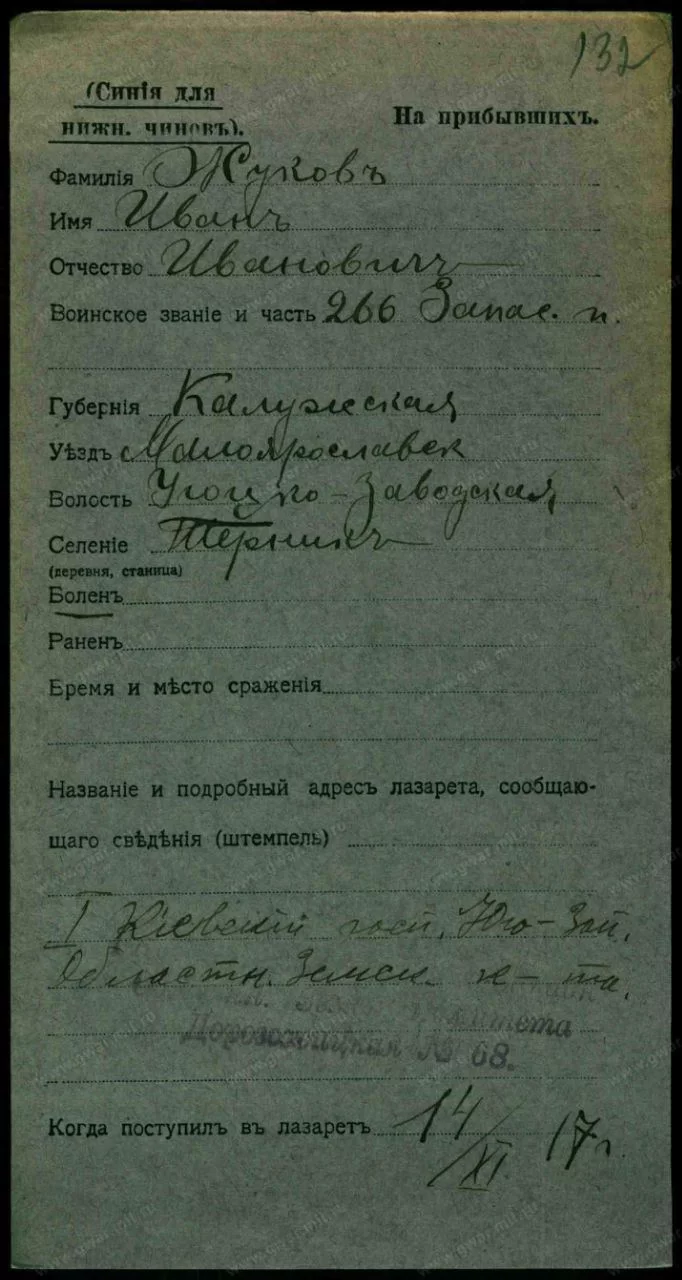 132
(Синія для
нижн. чиновъ).
На прибывшихъ.
Фамилія Жуковъ
Имя Иванъ
Отчество Ивановичъ
Воинское званіе и часть 266 Запас. п.
Губернія Калужская
Уѣздъ Малоярославек
Волость Угоцко-Заводская
Селеніе
(деревня, станица)
Боленъ
Раненъ
Время и мѣсто сраженія
Названіе и подробный адресъ лазарета, сообщаю-
щаго свѣдѣнія (штемпель)
I Кіевскій госп. Юго-Зап.
Областн. Земск. к-та.
Комитета
Дорогожицкая № 68.
Когда поступилъ въ лазаретъ 14/XI 17 г.